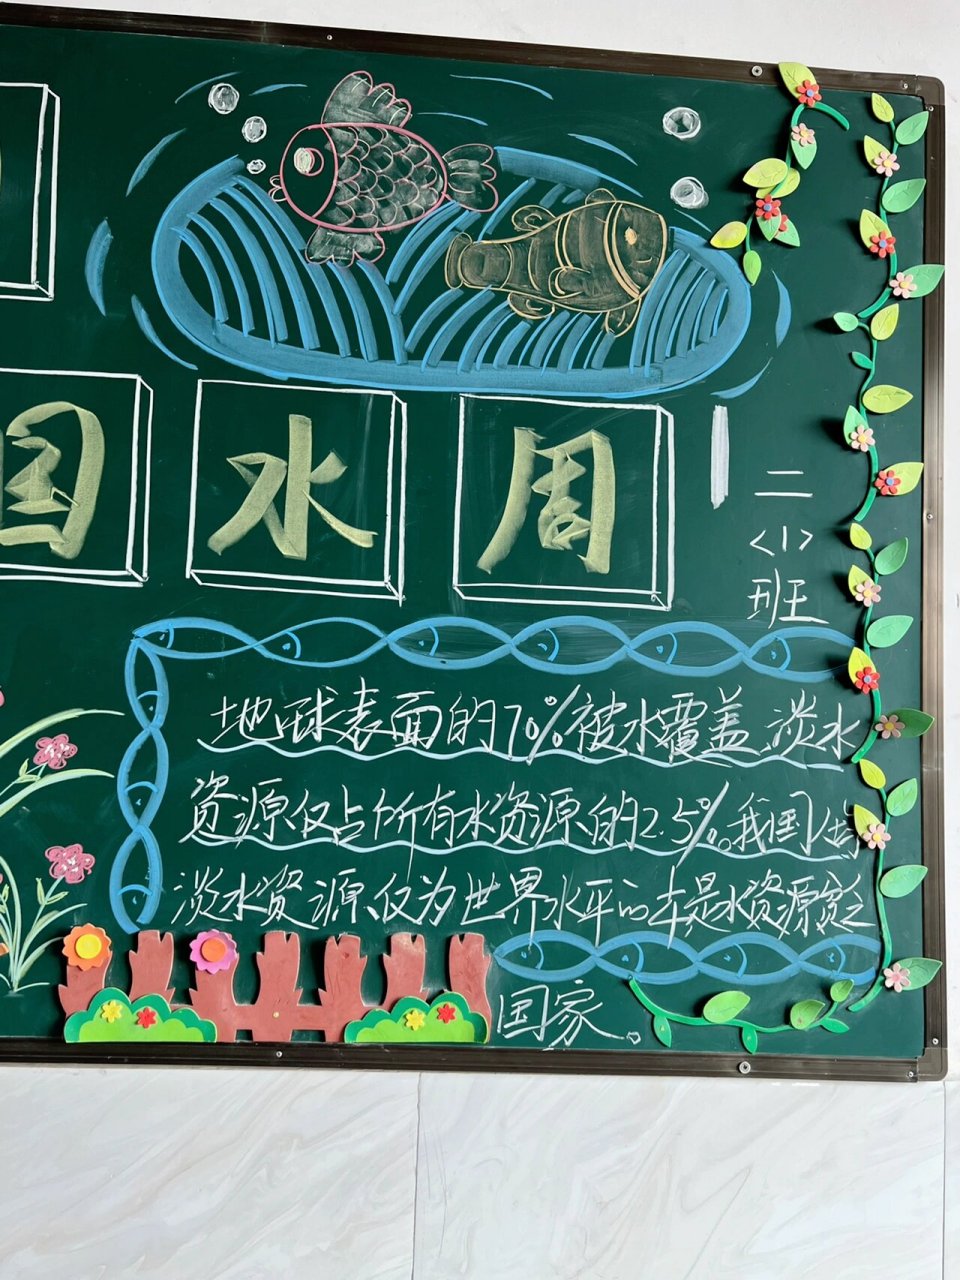 国水周
二
<1>
班
地球表面的70%被水覆盖.淡水
资源仅占所有水资源的2.5%。我国人均
淡水资源仅为世界水平的 是水资源贫乏
国家。